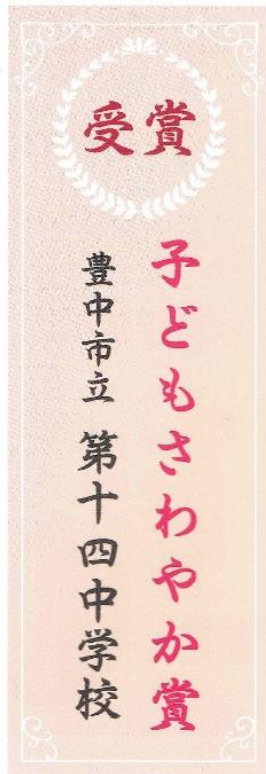 受賞
子どもさわやか賞
豊中市立 第十四中学校